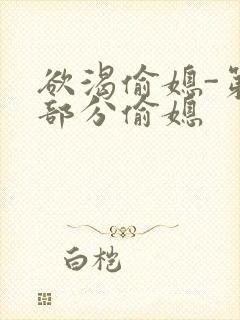 欲渴偷媳-第
部分偷媳
白桤